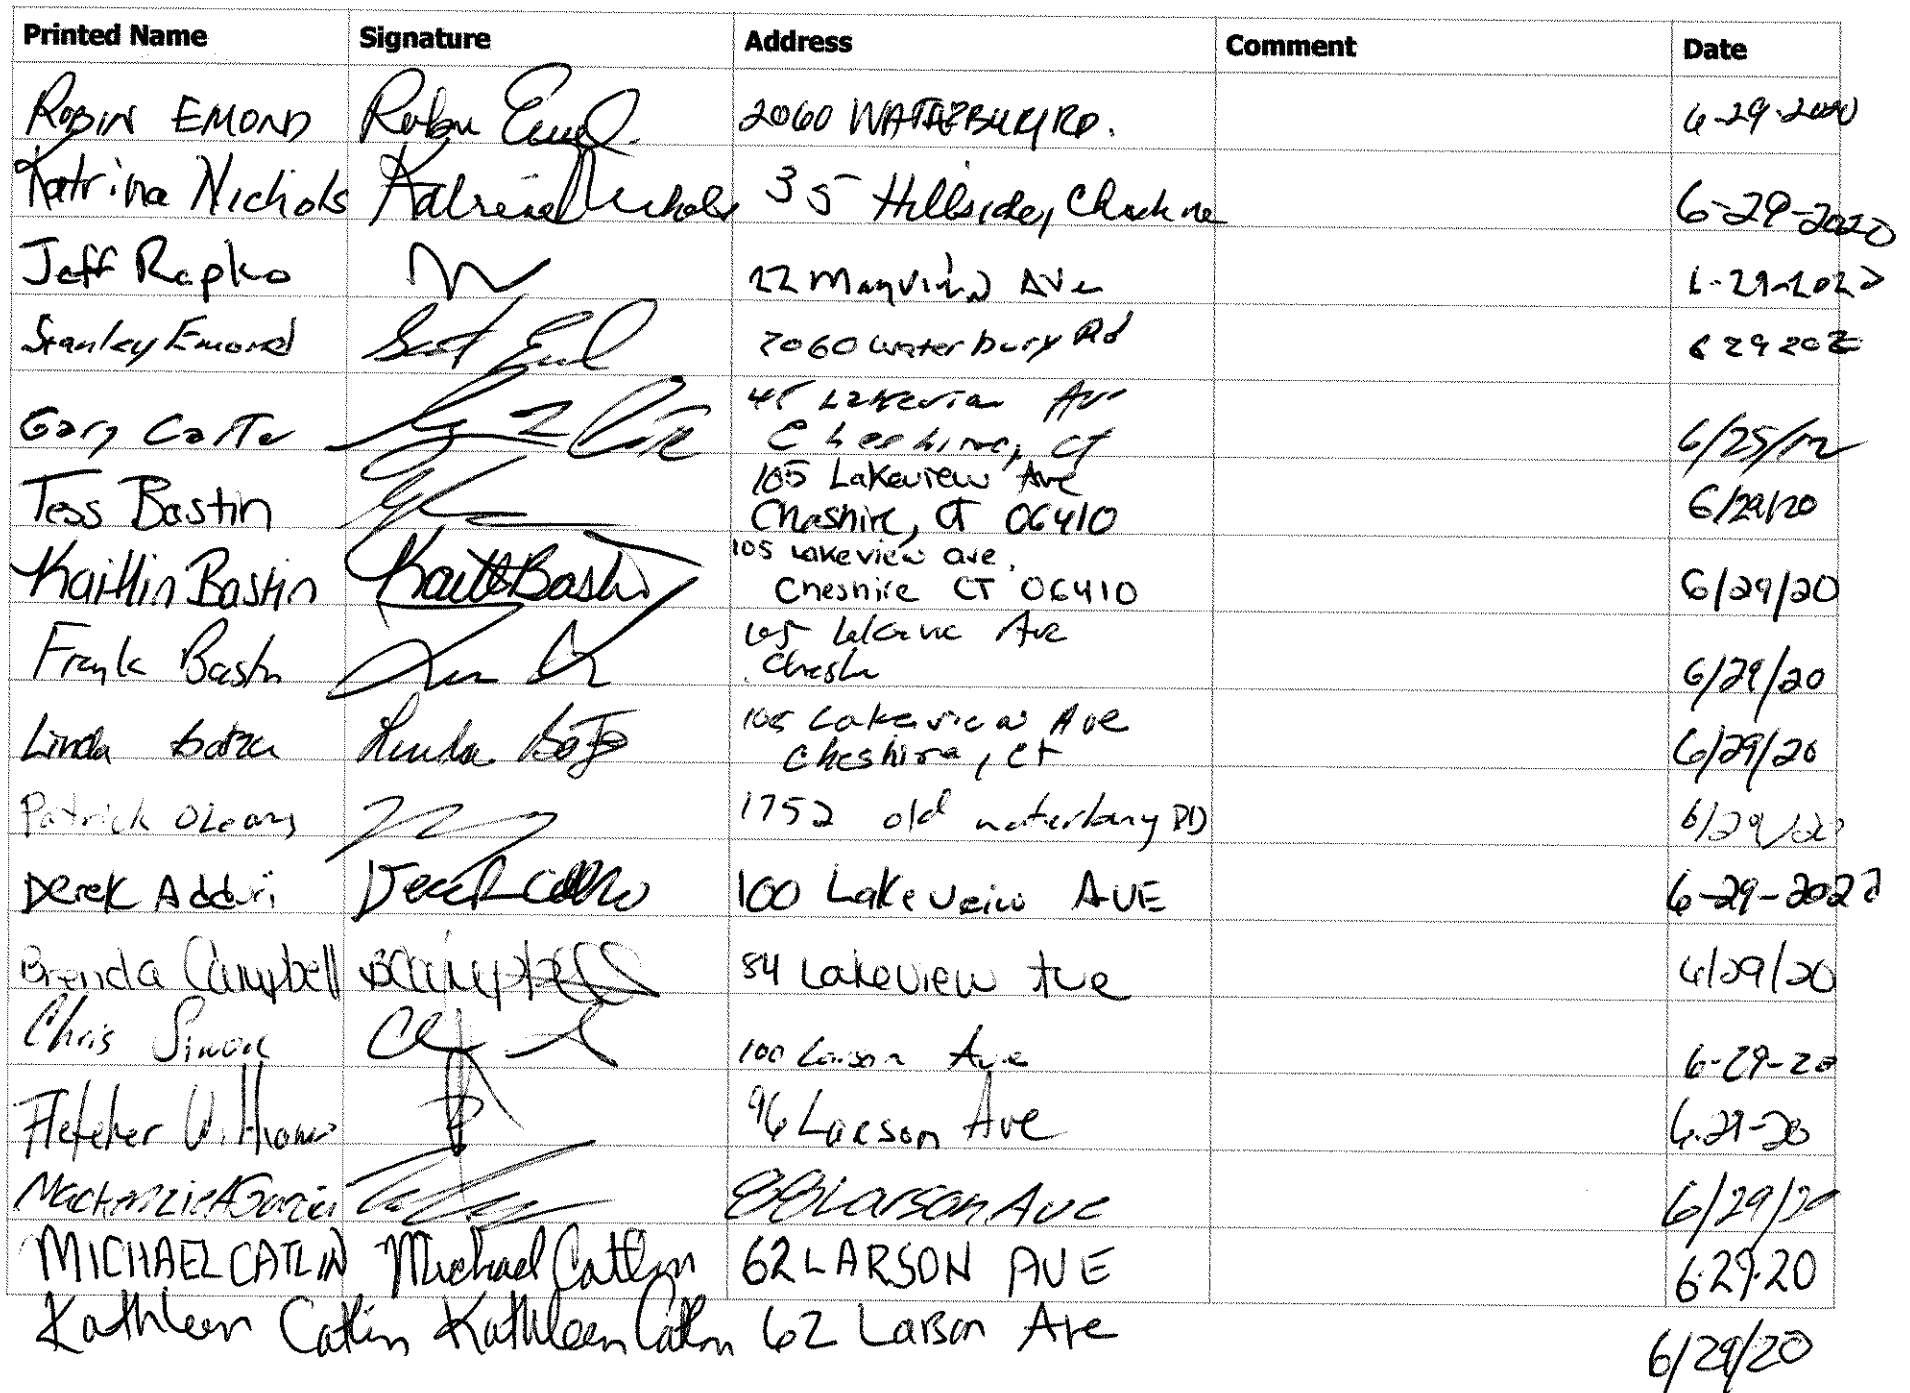 Printed Name Signature Address Comment Date
ROBIN EMOND Robin Emond 2060 WATERBURY RD. 6-29-2020
Katrina Nichols Katrina Nichols 35 Hillside, 6-29-2020
Jeff Rapko 22 Mayview Ave 6-29-2020
Stanley Emond 2060 waterbury Rd 6 29 202
Gary Carter Ave
Cheshire, CT
Tess Bastin 105 Lakeview Ave 6/29/20
Cheshire, CT 06410
Kaitlin Bastin Kaitlin Bastin 105 Lakeview ave. 6/29/20
Cheshire CT 06410
Frank Bastin 105 Ave 6/29/20
Linda Linda 105 Lakeview Ave 6/29/20
Cheshire, CT
Patrick OLeary 1752 old waterbury RD 6/29/20
Derek Adduri 100 Lakeveiw AVE 6-29-202
Brenda Campbell BCampbell 84 Lakeview Ave 6/29/20
Chris Simone 100 Larson Ave 6-29-20
Fletcher 96 Larson Ave 6-29-20
Mackenzie 88 Larson Ave 6/29/20
MICHAEL CATLIN Michael Catlin 62 LARSON AVE 6.29.20
Kathleen Catlin Kathleen Catlin 62 Larson Ave 6/29/20